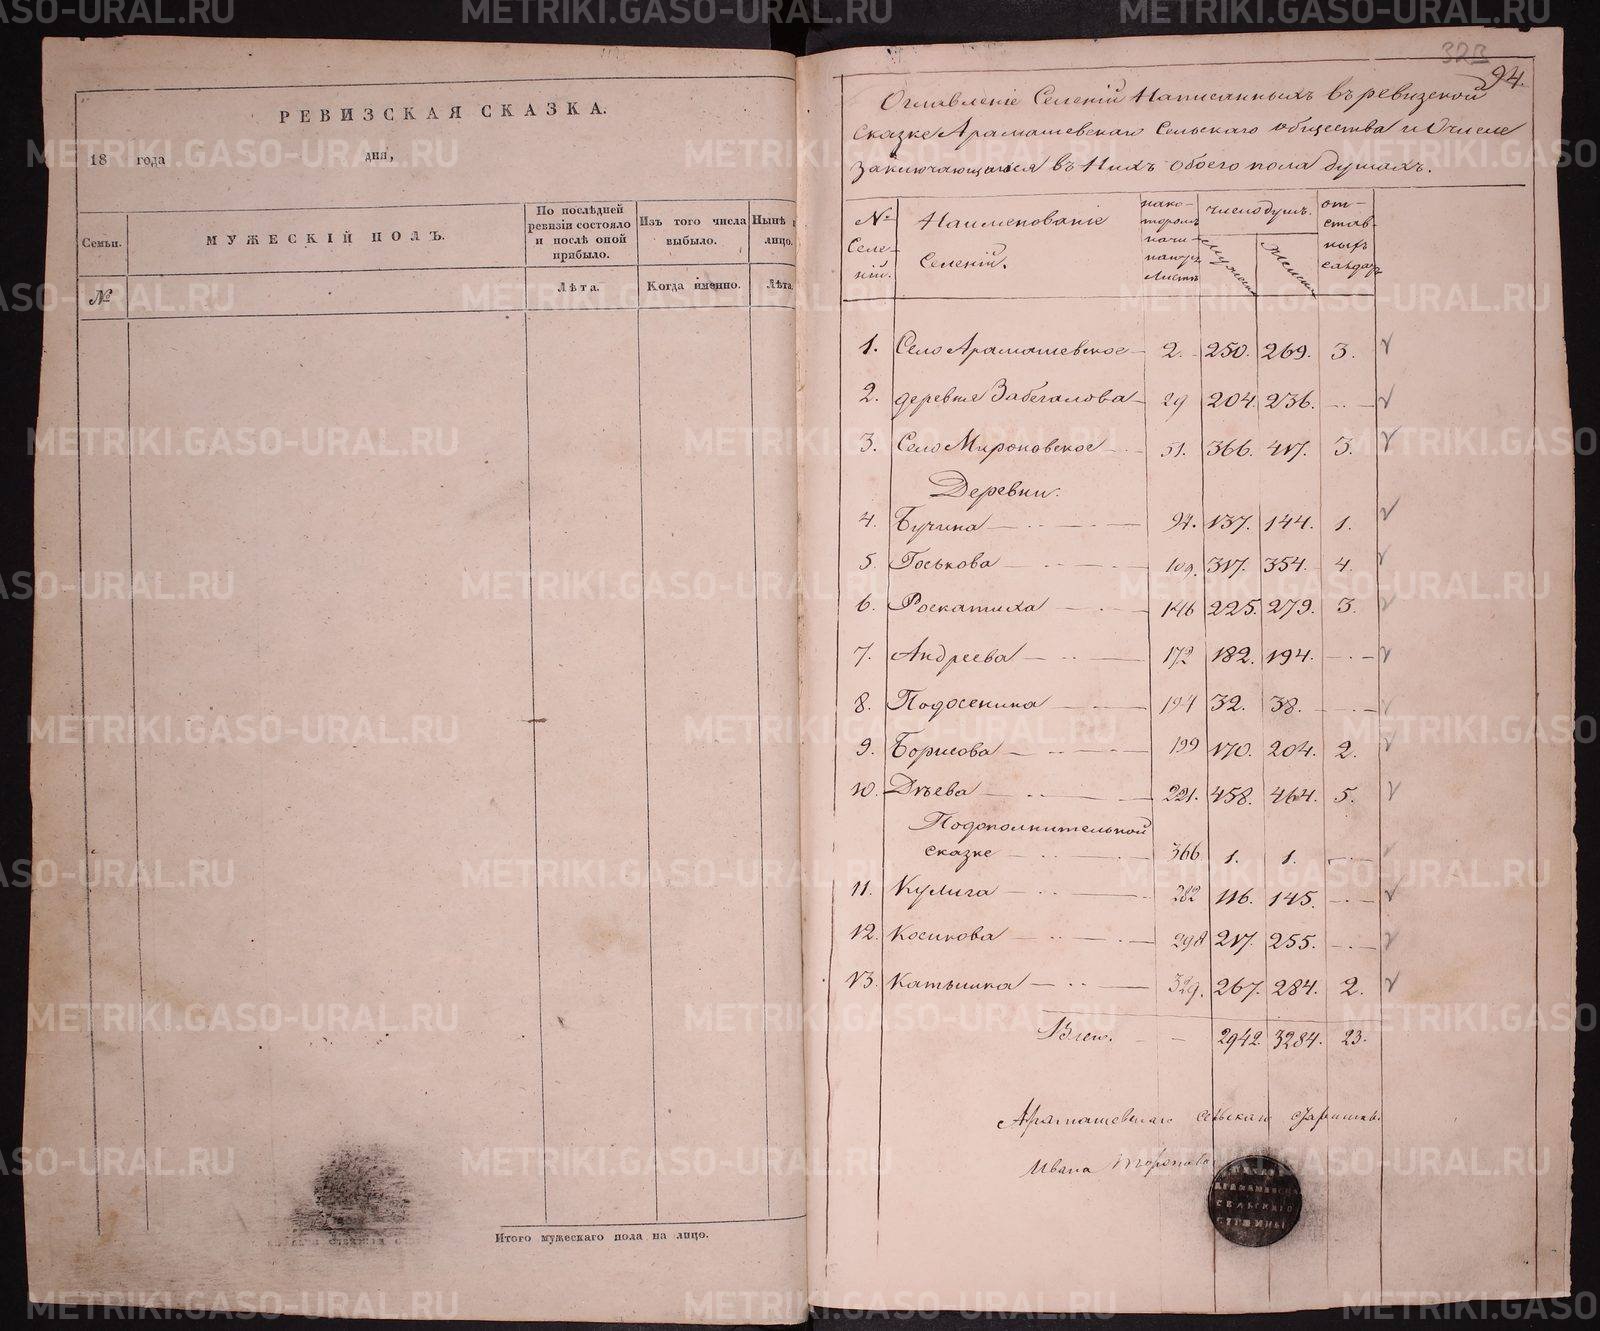 РЕВИЗСКАЯ СКАЗКА.
18 года дня,
Семьи.
МУЖЕСКІЙ ПОЛЪ.
По послѣдней ревизіи состояло и послѣ оной прибыло.
Изъ того числа выбыло.
Нынѣ
лицо.
№
Лѣта.
Когда именно.
Лѣта.
Итого мужескаго пола на лицо.
94.
Оглавленіе Селеній Написанныхъ въ ревизской
сказке Арамашевскаго Сельскаго общества и Очисле
Заключающихся въ Нихъ обоего пола душахъ.
№ Селеній.
Наименованіе Селеній.
накотромъ начинаются листѣ
число душъ.
Мужска
Женска
отставныхъ солдатъ
1. Село Арамашевское 2. 250. 269. 3.
2. деревне Забегалова 29 204. 236.
3. Село Мироновское 51. 366. 417. 3.
Деревни.
4. Бучина 94. 137. 144. 1.
5. Госькова 109. 317. 354. 4.
6. Роскатиха 146 225. 279. 3.
7. Андреева 172 182. 194.
8. Подосенина 194 32. 38.
9. Борисова 199 170. 204. 2.
10. Дѣева 221. 458. 464. 5.
Подополнительной
сказке 366. 1. 1.
11. Кулига 282 116. 145.
12. Косикова 298 217. 255.
13. Катышка 329. 267. 284. 2.
Всего. 2942. 3284. 23.
Арамашевскаго сельскаго старшины.
Ивана
СЕЛЬСКАГО
СТРШИНЫ
METRIKI.GASO-URAL.RU